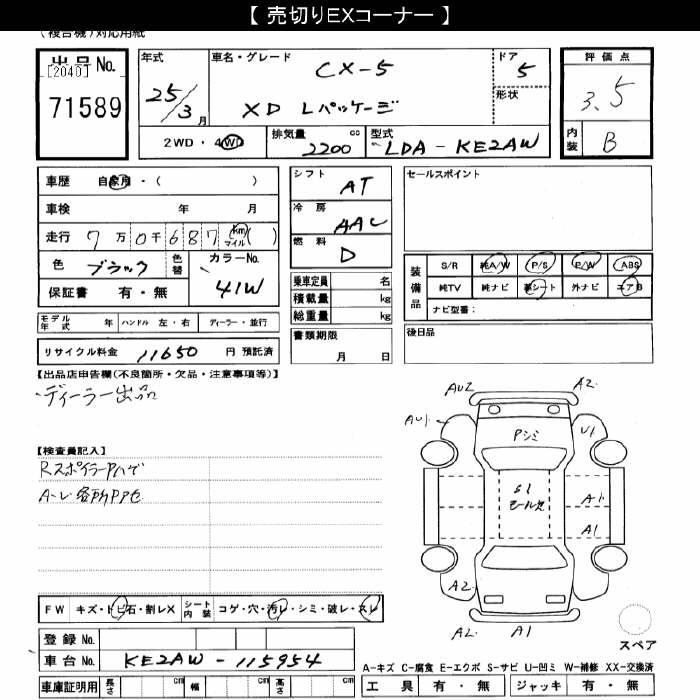 【 売切りEXコーナー 】
(複合機)対応用紙
出品No.
[2040]
71589
年式
25/3月
車名・グレード
CX-5
XD Lパッケージ
ドア
5
形状
評価点
3.5
内装
B
2WD・4WD
排気量 cc
2200
型式
LDA-KE2AW
車歴 自家用・( )
車検 年 月
走行 7万0千687 km マイル ( )
色 ブラック
色替
カラーNo.
41W
保証書 有・無
シフト
AT
冷房
AAC
燃料
D
乗車定員 名
積載量 kg
総重量 kg
書類期限
月 日
セールスポイント
装備品
S/R 純A/W P/S P/W ABS
純TV 純ナビ 革シート 外ナビ エアB
ナビ型番:
後日品
モデル年式 年 ハンドル 左・右 ディーラー・並行
リサイクル料金 11650 円 預託済
【出品店申告欄(不良箇所・欠品・注意事項等)】
ディーラー出品
【検査員記入】
RスポイラーPハゲ
A-レ 各所PP色
AU2
A2
AU1
Pシミ
U1
S1
モール欠
A1
A1
A2
A2
A1
スペア
FW キズ・トビ石・割レX
シート内装 コゲ・穴・汚レ・シミ・破レ・スレ
登録 No.
車台 No. KE2AW-115954
車庫証明用 長さ cm 幅 cm 高さ cm
A-キズ C-腐食 E-エクボ S-サビ U-凹ミ W-補修 XX-交換済
工具 有・無 ジャッキ 有・無